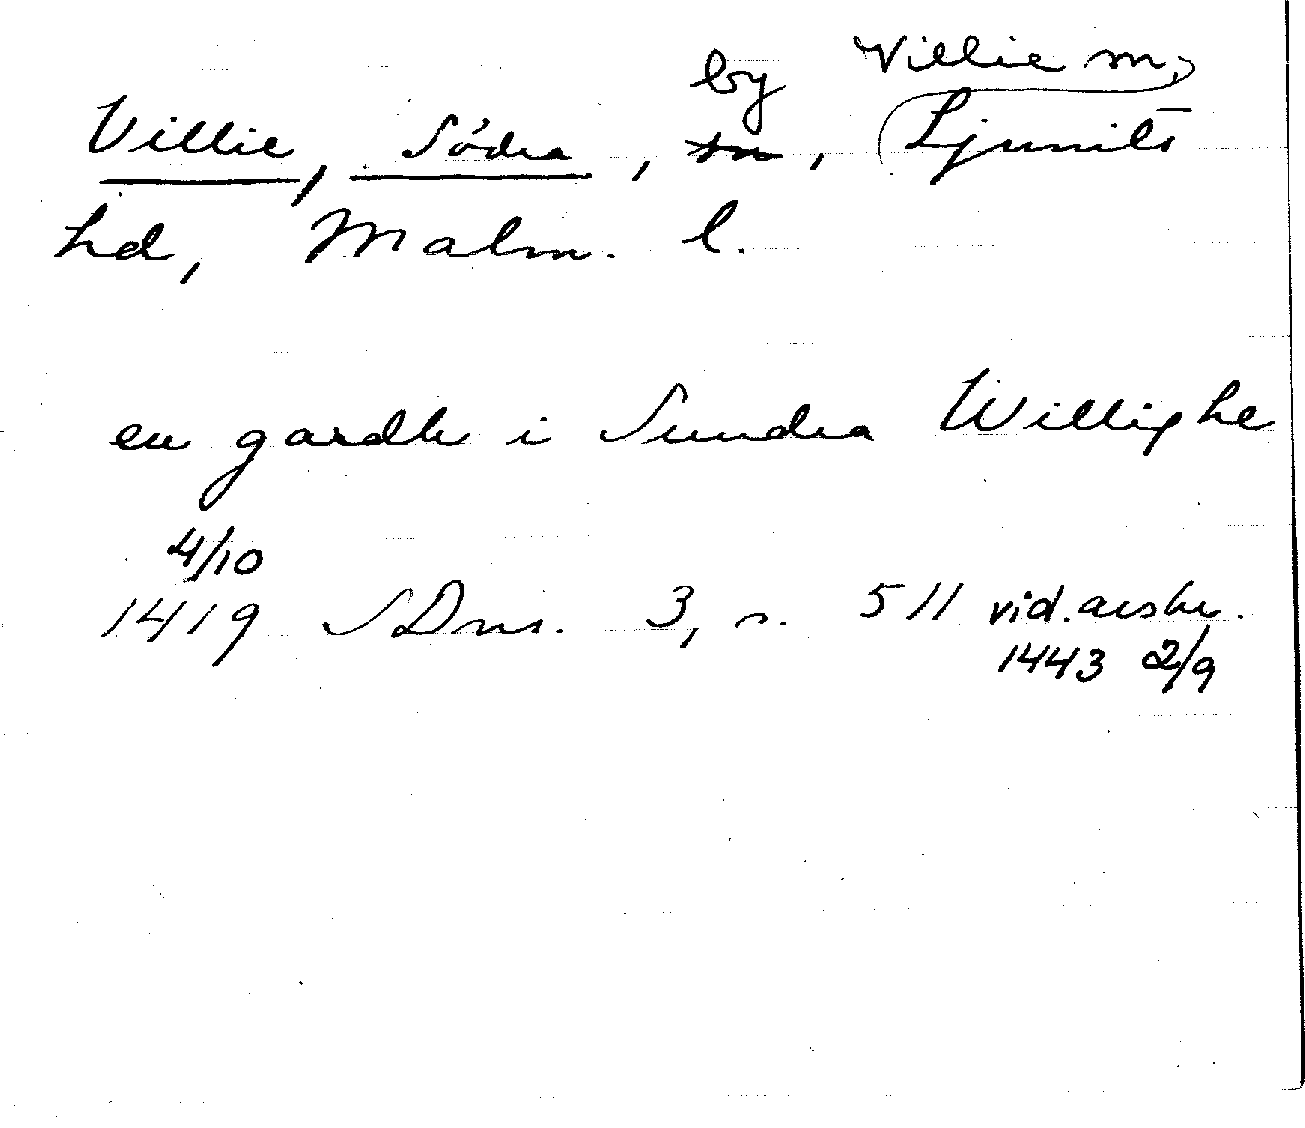 by Villie sn,
Villie, Södra, sn, Ljunits
hd, Malm. l.
en gardh i Sundra Willighe
4/10
1419 SDns. 3, s. 511 vid. avskr.
1443 2/9